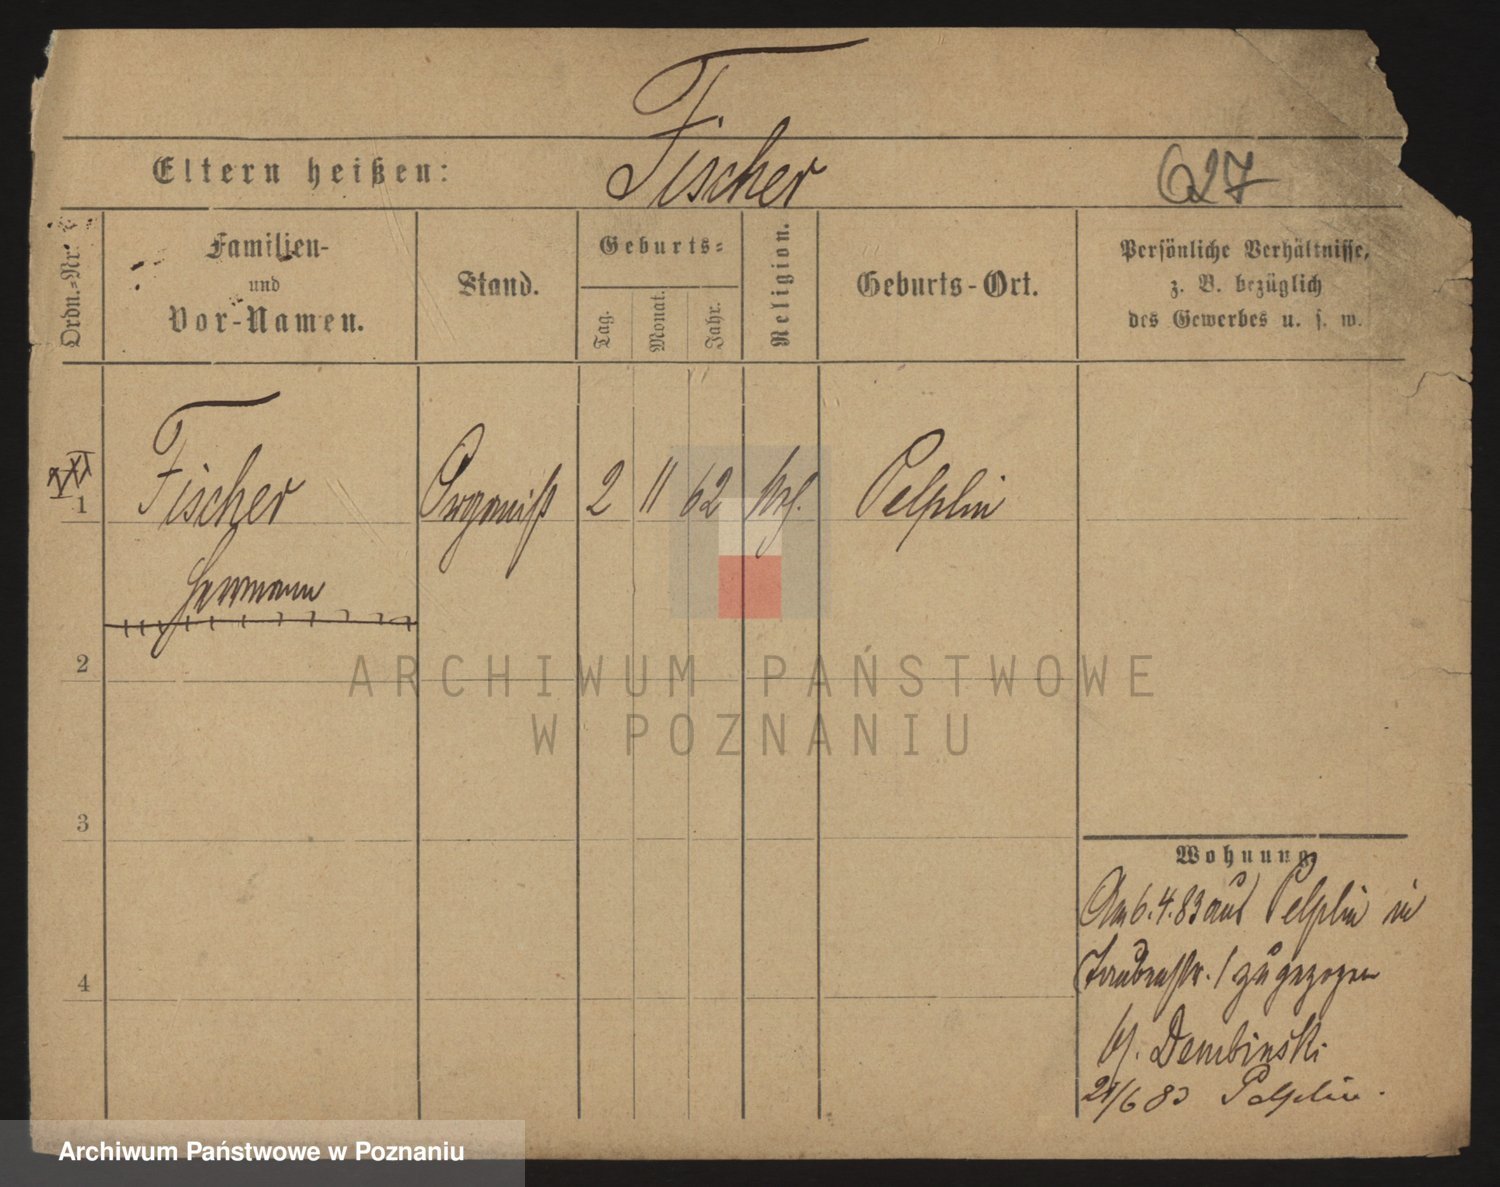 Fischer
Eltern heißen: Fischer 627
Ordn.-Nr.
Familien-
und
Vor-Namen.
Stand.
Geburts-
Tag.
Monat.
Jahr.
Religion.
Geburts-Ort.
Persönliche Verhältnisse,
z. B. bezüglich
des Gewerbes u. s. w.
1 Fischer Organist 2 11 62 Pelplin
Hermann
2
3
4
Wohnung
Am 6.4.83 aus Pelplin in
Taubenstr. 1 zugezogen
Dembinski
21/6 83 Pelplin.
ARCHIWUM PAŃSTWOWE
W POZNANIU
Archiwum Państwowe w Poznaniu